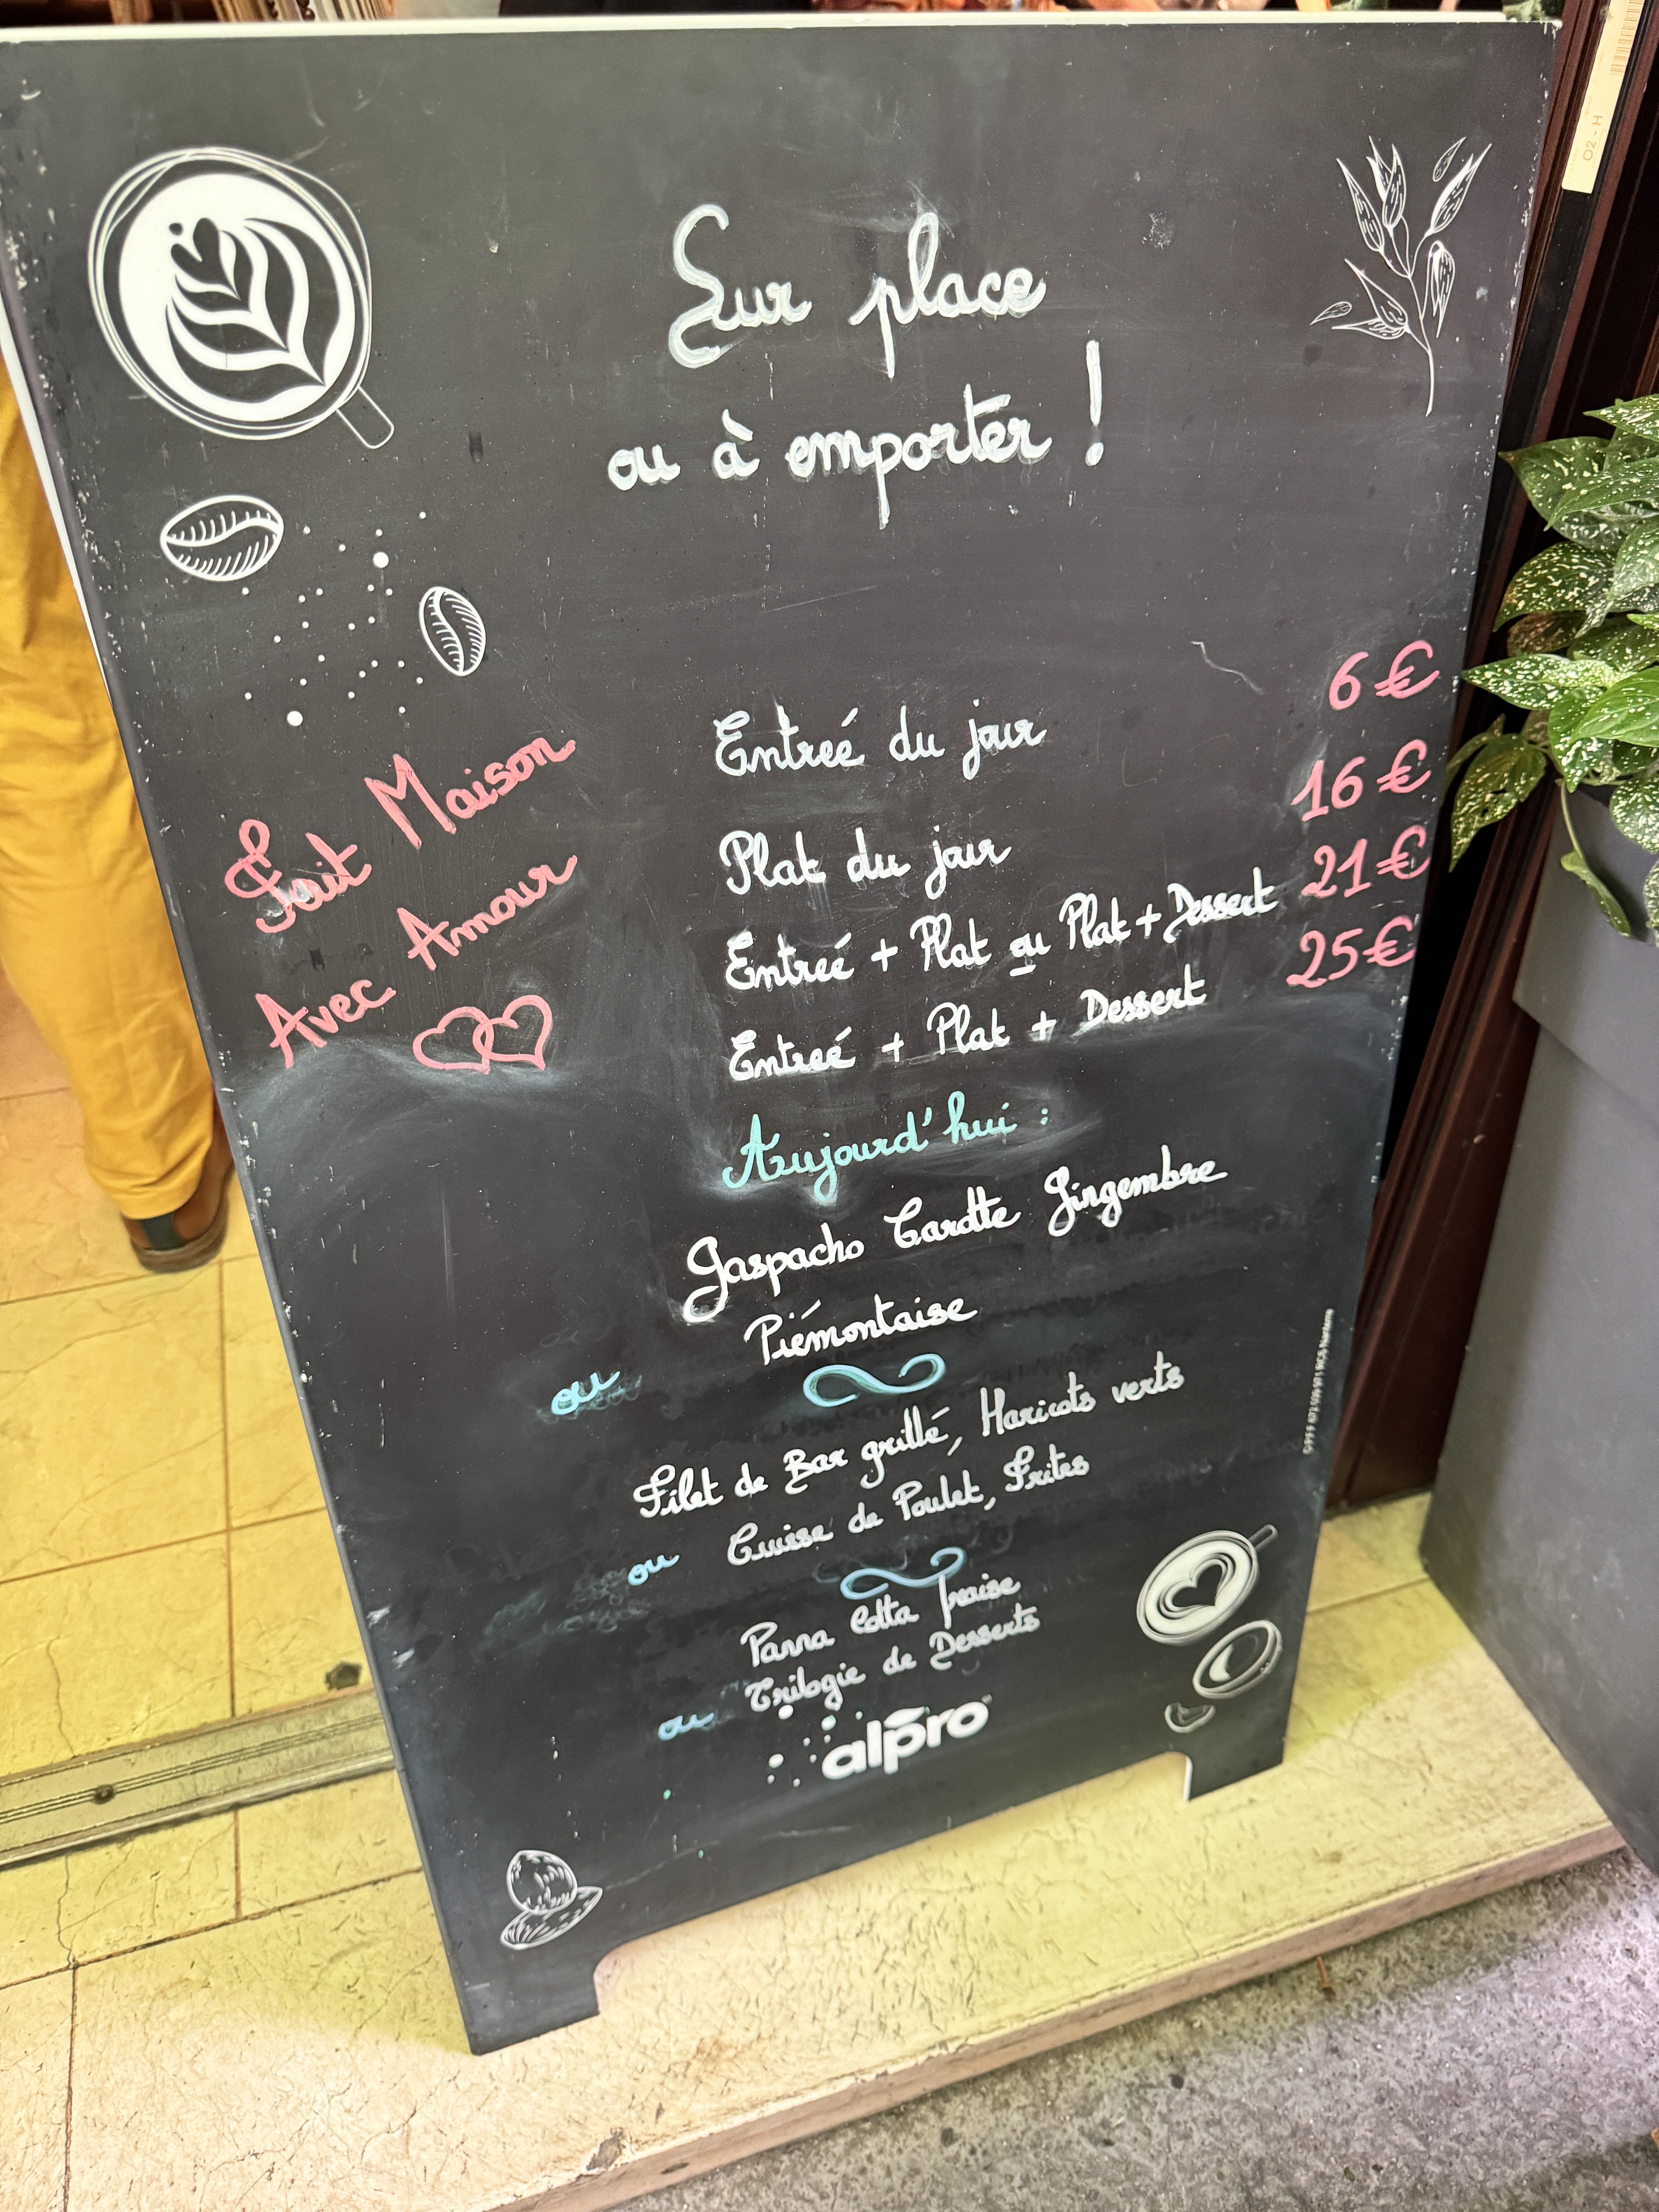 Sur place
ou à emporter !
Fait Maison
Avec Amour
Entreé du jour 6€
Plat du jour 16€
Entreé + Plat ou Plat + Dessert 21€
Entreé + Plat + Dessert 25€
Aujourd'hui :
Gaspacho Carotte Gingembre
ou Piémontaise
Filet de Bar grillé, Haricots verts
ou Cuisse de Poulet, Frites
Panna Cotta fraise
ou Trilogie de Desserts
alpro
02 - H